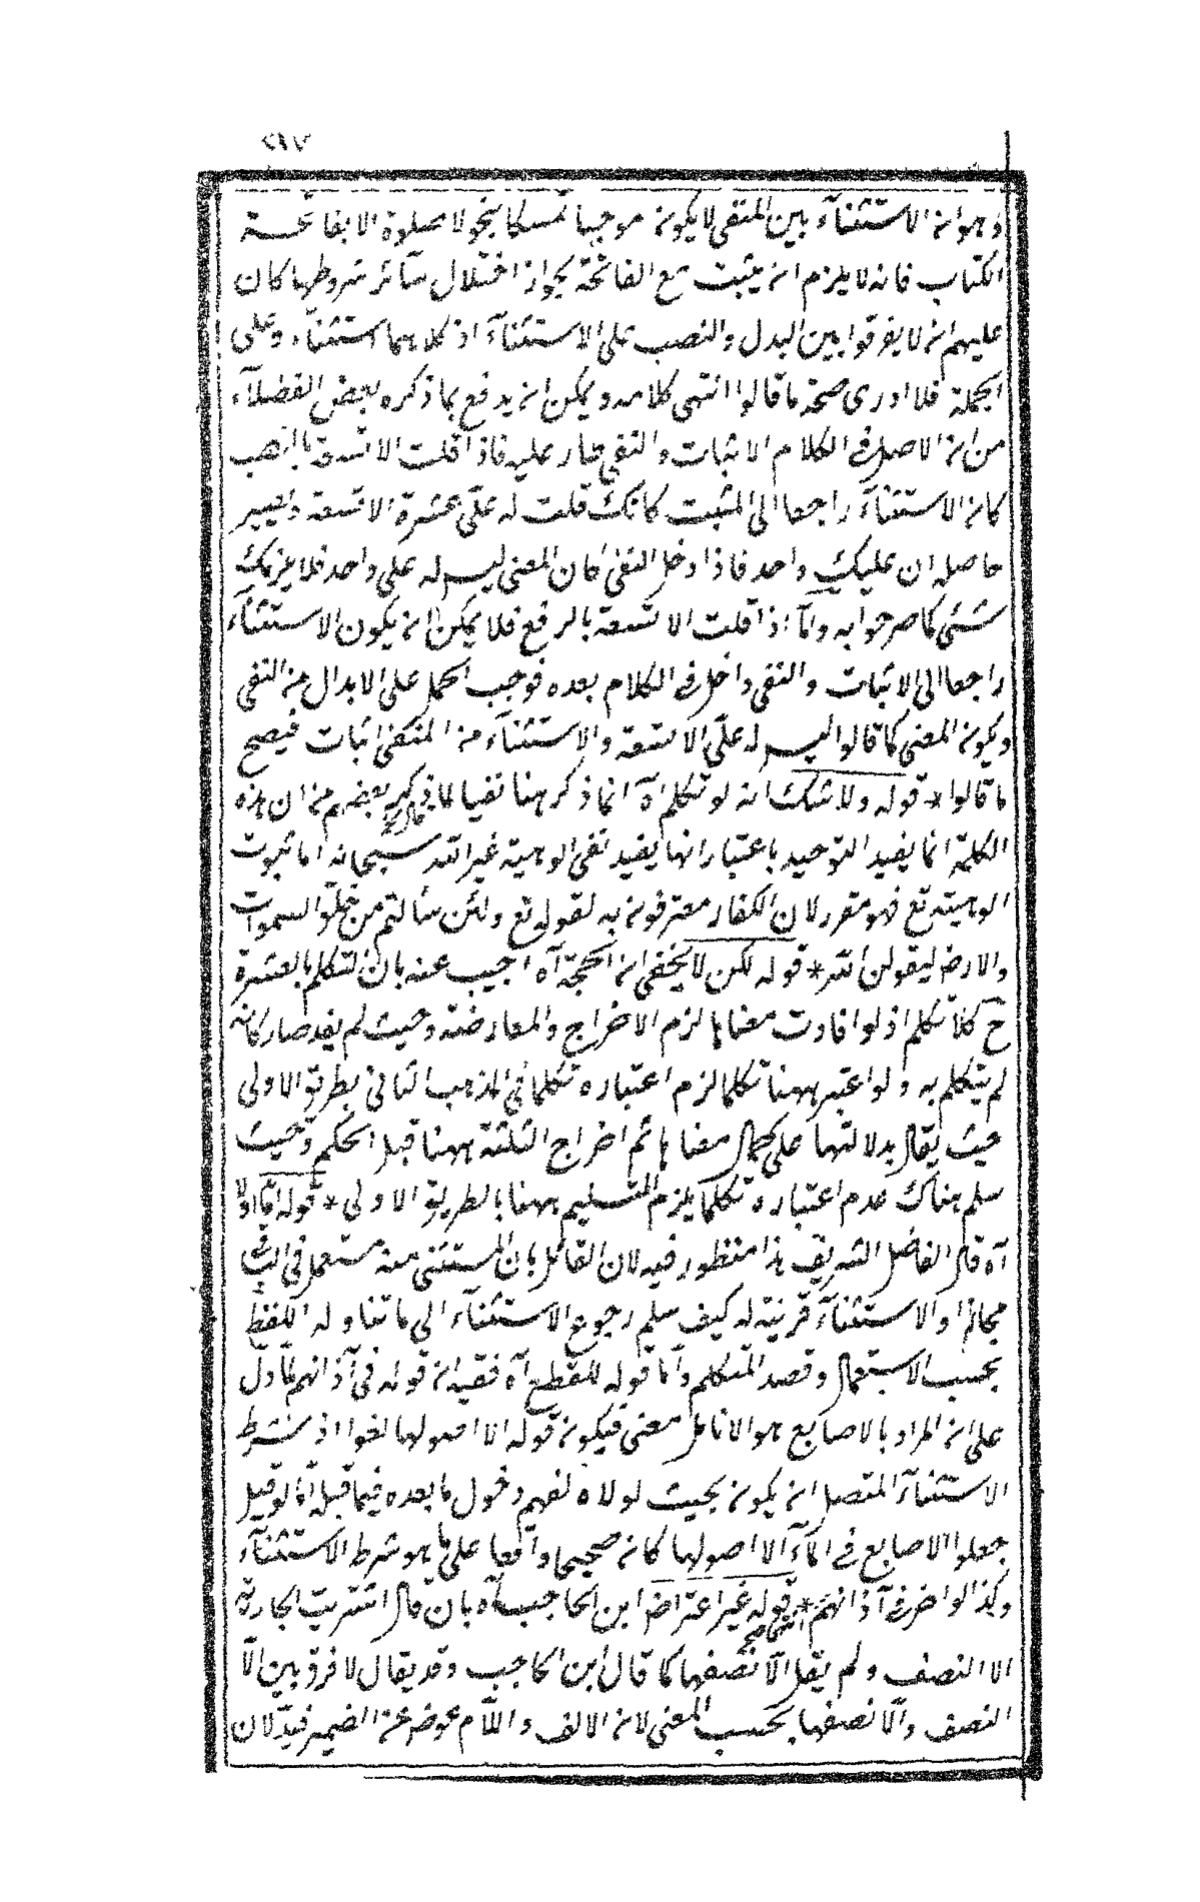 ٢٩٧
وهو ان الاستثناء بين المنفى لا يكون موجبا تمسكا بنحو لا صلوة الا بفاتحة
الكتاب فانه لا يلزم ان يثبت مع الفاتحة بجواز اختلال سائر شروطها كان
عليهم ان لا يفرقوا بين البدل والنصب على الاستثناء اذ كلاهما استثناء وعلى
الجملة فلا ادرى صحة ما قالوا انتهى كلامه ويمكن ان يدفع بما ذكره بعض الفضلاء
من ان الاصل فى الكلام الاثبات والنفى طار عليه فاذا قلت الا تسعة بالنصب
كان الاستثناء راجعا الى المثبت كانك قلت له على عشرة الا تسعة ويصير
حاصله ان عليك واحد فاذا دخل النفى كان المعنى ليس له على واحد فلا يلزمك
شئ كما صر جوابه واما اذا قلت الا تسعة بالرفع فلا يمكن ان يكون الاستثناء
راجعا الى الاثبات والنفى داخل فى الكلام بعده فوجب الحمل على الابدال من النفى
ويكون المعنى كما قالوا ليس له على الا تسعة والاستثناء من المنفى اثبات فيصح
ما قالوا * قوله ولا شك انه لو تكلم اه انما ذكر هنا نفيا لما ذكره بعضهم من ان هذه
الكلمة انما يفيد التوحيد باعتبار انها يفيد نفى الوهية غير الله سبحانه اما ثبوت
الوهيته تع فهو مقرر لان الكفار معترفون به لقوله تع ولئن سألتهم من خلق السموات
والارض ليقولن الله * قوله لكن لا يخفى ان الحجة آه اجيب عنه بان التكلم بالعشرة
ح كلا تكلم اذ لو افادت معناها لزم الاخراج والمعارضة وحيث لم يفد صار كانه
لم يتكلم به ولو اعتبر ههنا تكلما لزم اعتباره تكلما فى المذهب الثانى بطريق الاولى
حيث يقال بدلالتها على كمال معناها ثم اخراج الثلثة ههنا قبل الحكم وحيث
سلم هناك عدم اعتباره تكلما يلزم التسليم ههنا بالطريق الاولى * قوله اما اولا
آه قال الفاضل الشريف هذا منظور فيه لان القائل بان المستثنى منه مستعمل فى الباقى
مجازا والاستثناء قرينة له كيف سلم رجوع الاستثناء الى ما تناوله اللفظ
بحسب الاستعمال وقصد المتكلم واما قوله للقطع آه ففيه ان قوله فى آذانهم لما دل
على ان المراد بالاصابع هو الانامل معنى فيكون قوله الا اصولها لغوا اذ شرط
الاستثناء المتصل ان يكون بحيث لولاه لفهم دخول ما بعده فيما قبله اما لو قيل
جعلوا الاصابع فى الماء الا اصولها كان صحيحا واقعا على ما هو شرط الاستثناء
وكذا لو اخر فى آذانهم * قوله غير اعتراض ابن الحاجب آه بان قال اشتريت الجارية
الا النصف ولم يقل الا نصفها كما قال ابن الحاجب وقد يقال لا فرق بين الا
النصف والا نصفها بحسب المعنى لان الالف واللام عوض عن الضمير فيه لان